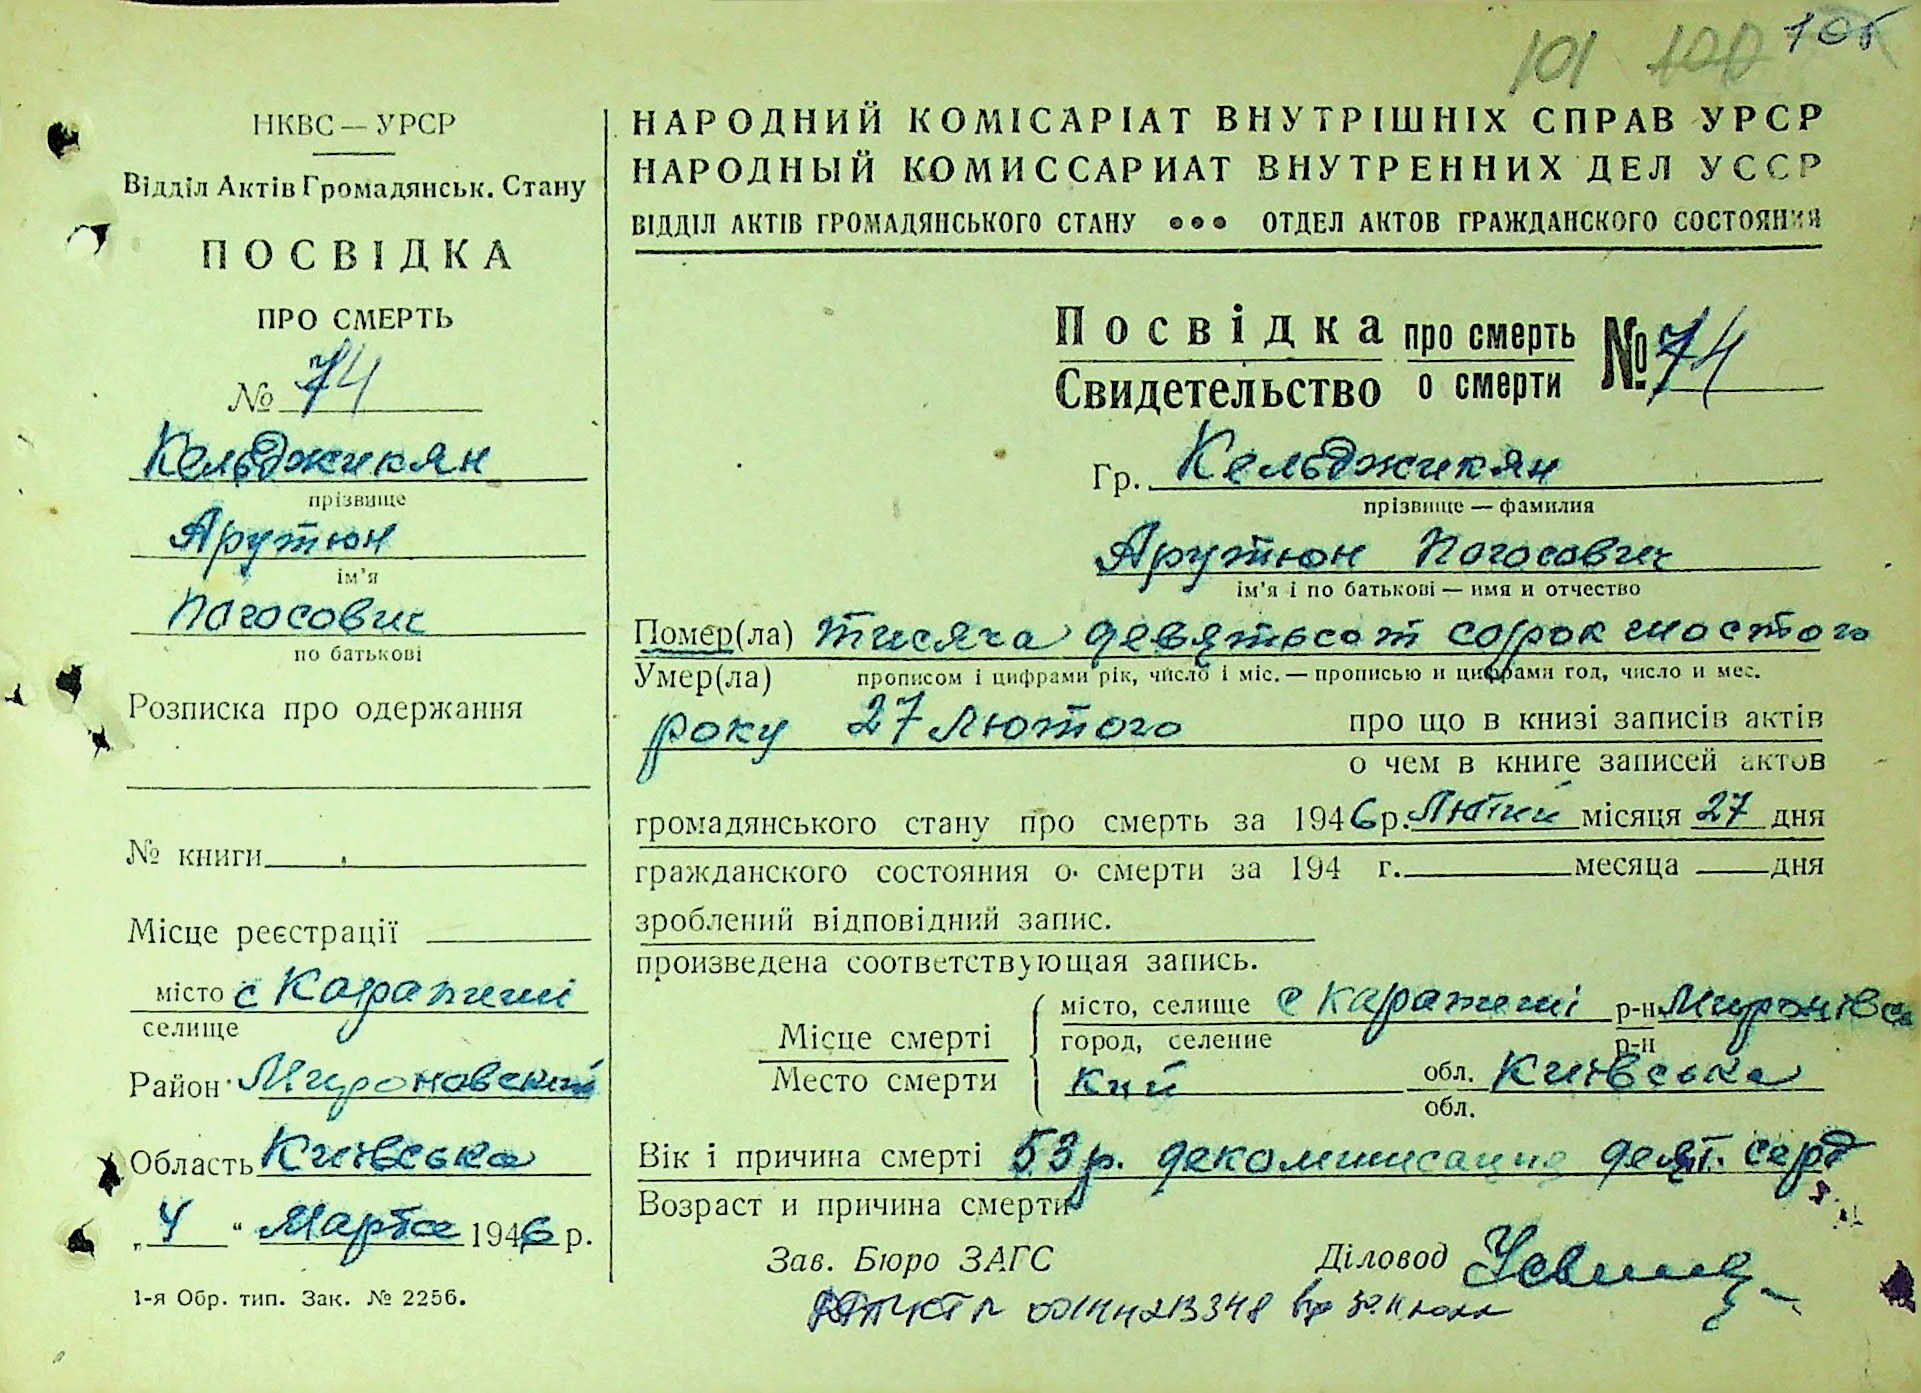 101 100 105
НКВС — УРСР
Відділ Актів Громадянськ. Стану
ПОСВІДКА
ПРО СМЕРТЬ
№ 74
Кельджикян
прізвище
Арутюн
ім'я
Погосович
по батькові
Розписка про одержання
№ книги
Місце реєстрації
місто с Карапиші
селище
Район Мироновский
Область Київська
„ 4 “ Марта 1946 р.
1-я Обр. тип. Зак. № 2256.
НАРОДНИЙ КОМІСАРІАТ ВНУТРІШНІХ СПРАВ УРСР
НАРОДНЫЙ КОМИССАРИАТ ВНУТРЕННИХ ДЕЛ УССР
ВІДДІЛ АКТІВ ГРОМАДЯНСЬКОГО СТАНУ ••• ОТДЕЛ АКТОВ ГРАЖДАНСКОГО СОСТОЯНИЯ
Посвідка про смерть № 74
Свидетельство о смерти
Гр. Кельджикян
прізвище — фамилия
Арутюн Погосович
ім'я і по батькові — имя и отчество
Помер(ла) тисяча девятьсот сорок шостого
Умер(ла) прописом і цифрами рік, число і міс. — прописью и цифрами год, число и мес.
року 27 лютого про що в книзі записів актів
о чем в книге записей актов
громадянського стану про смерть за 1946 р. Лютий місяця 27 дня
гражданского состояния о смерти за 194 г. месяца дня
зроблений відповідний запис.
произведена соответствующая запись.
Місце смерті місто, селище с Карапиші р-н Миронівсь
Место смерти город, селение р-н
кий обл. Київська
обл.
Вік і причина смерті 53 р. декомписация деят. серд
Возраст и причина смерти
Зав. Бюро ЗАГС Діловод